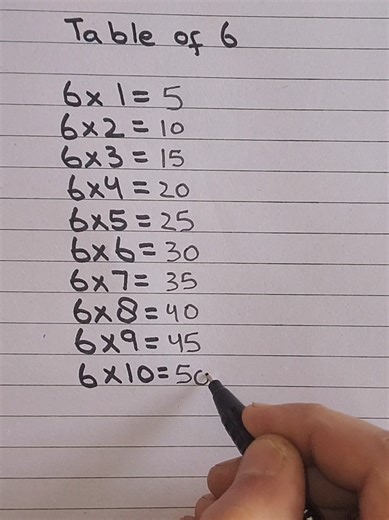 Table of 6
6x1=5
6x2=10
6x3=15
6x4=20
6x5=25
6x6=30
6x7=35
6x8=40
6x9=45
6x10=50